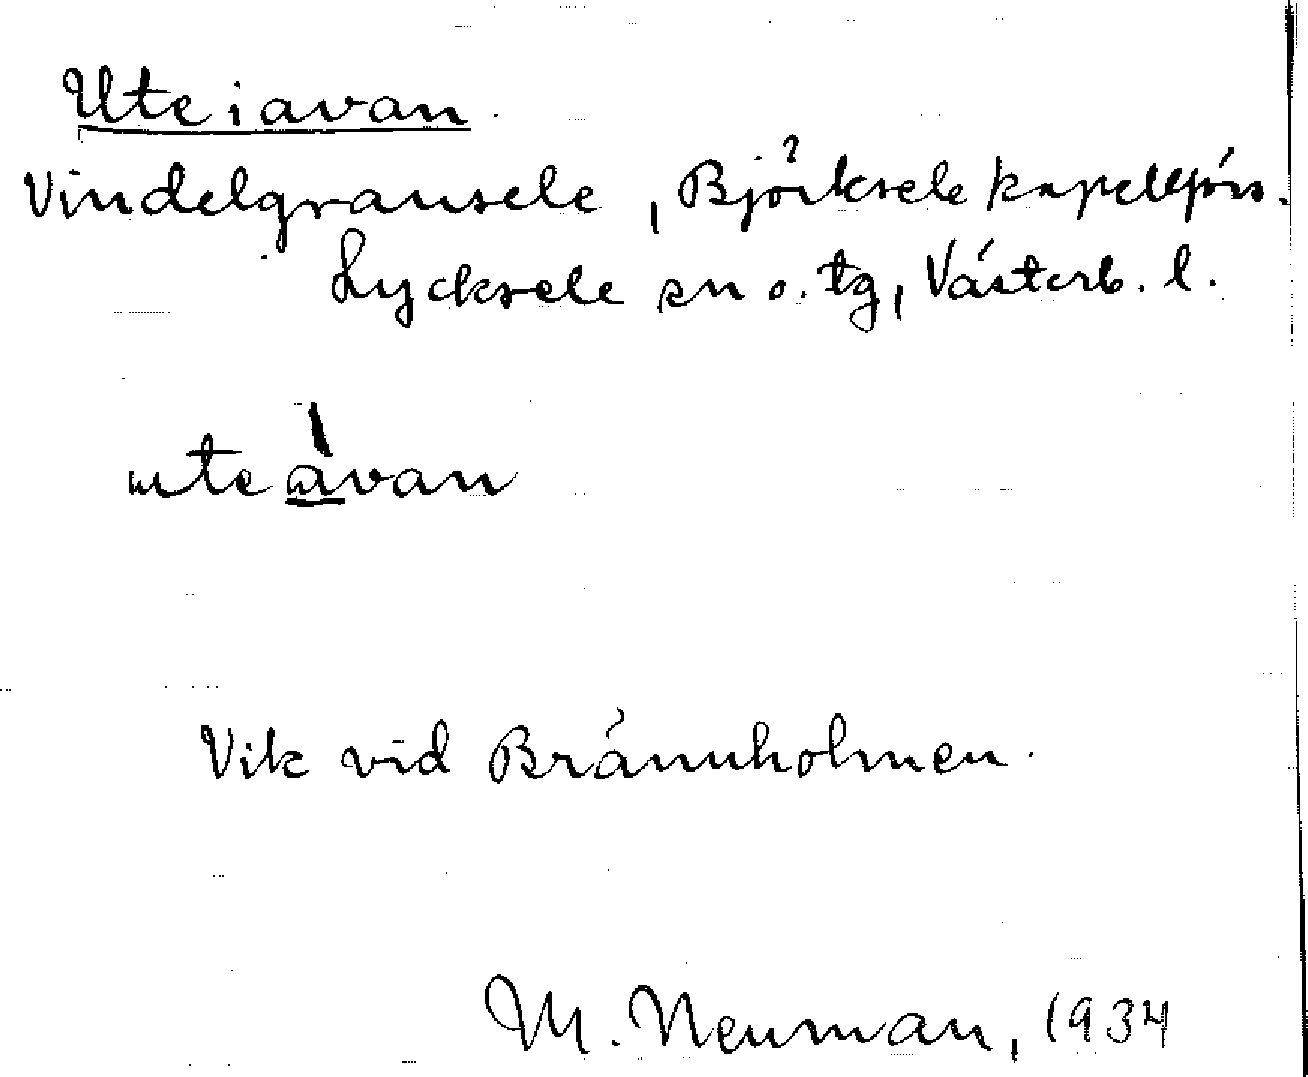 Ute i avan.
Vindelgransele, Björksele kapellförs.
Lycksele sn o. tg, Västerb. l.
ute àvan
Vik vid Brännholmen.
M. Neuman, 1934